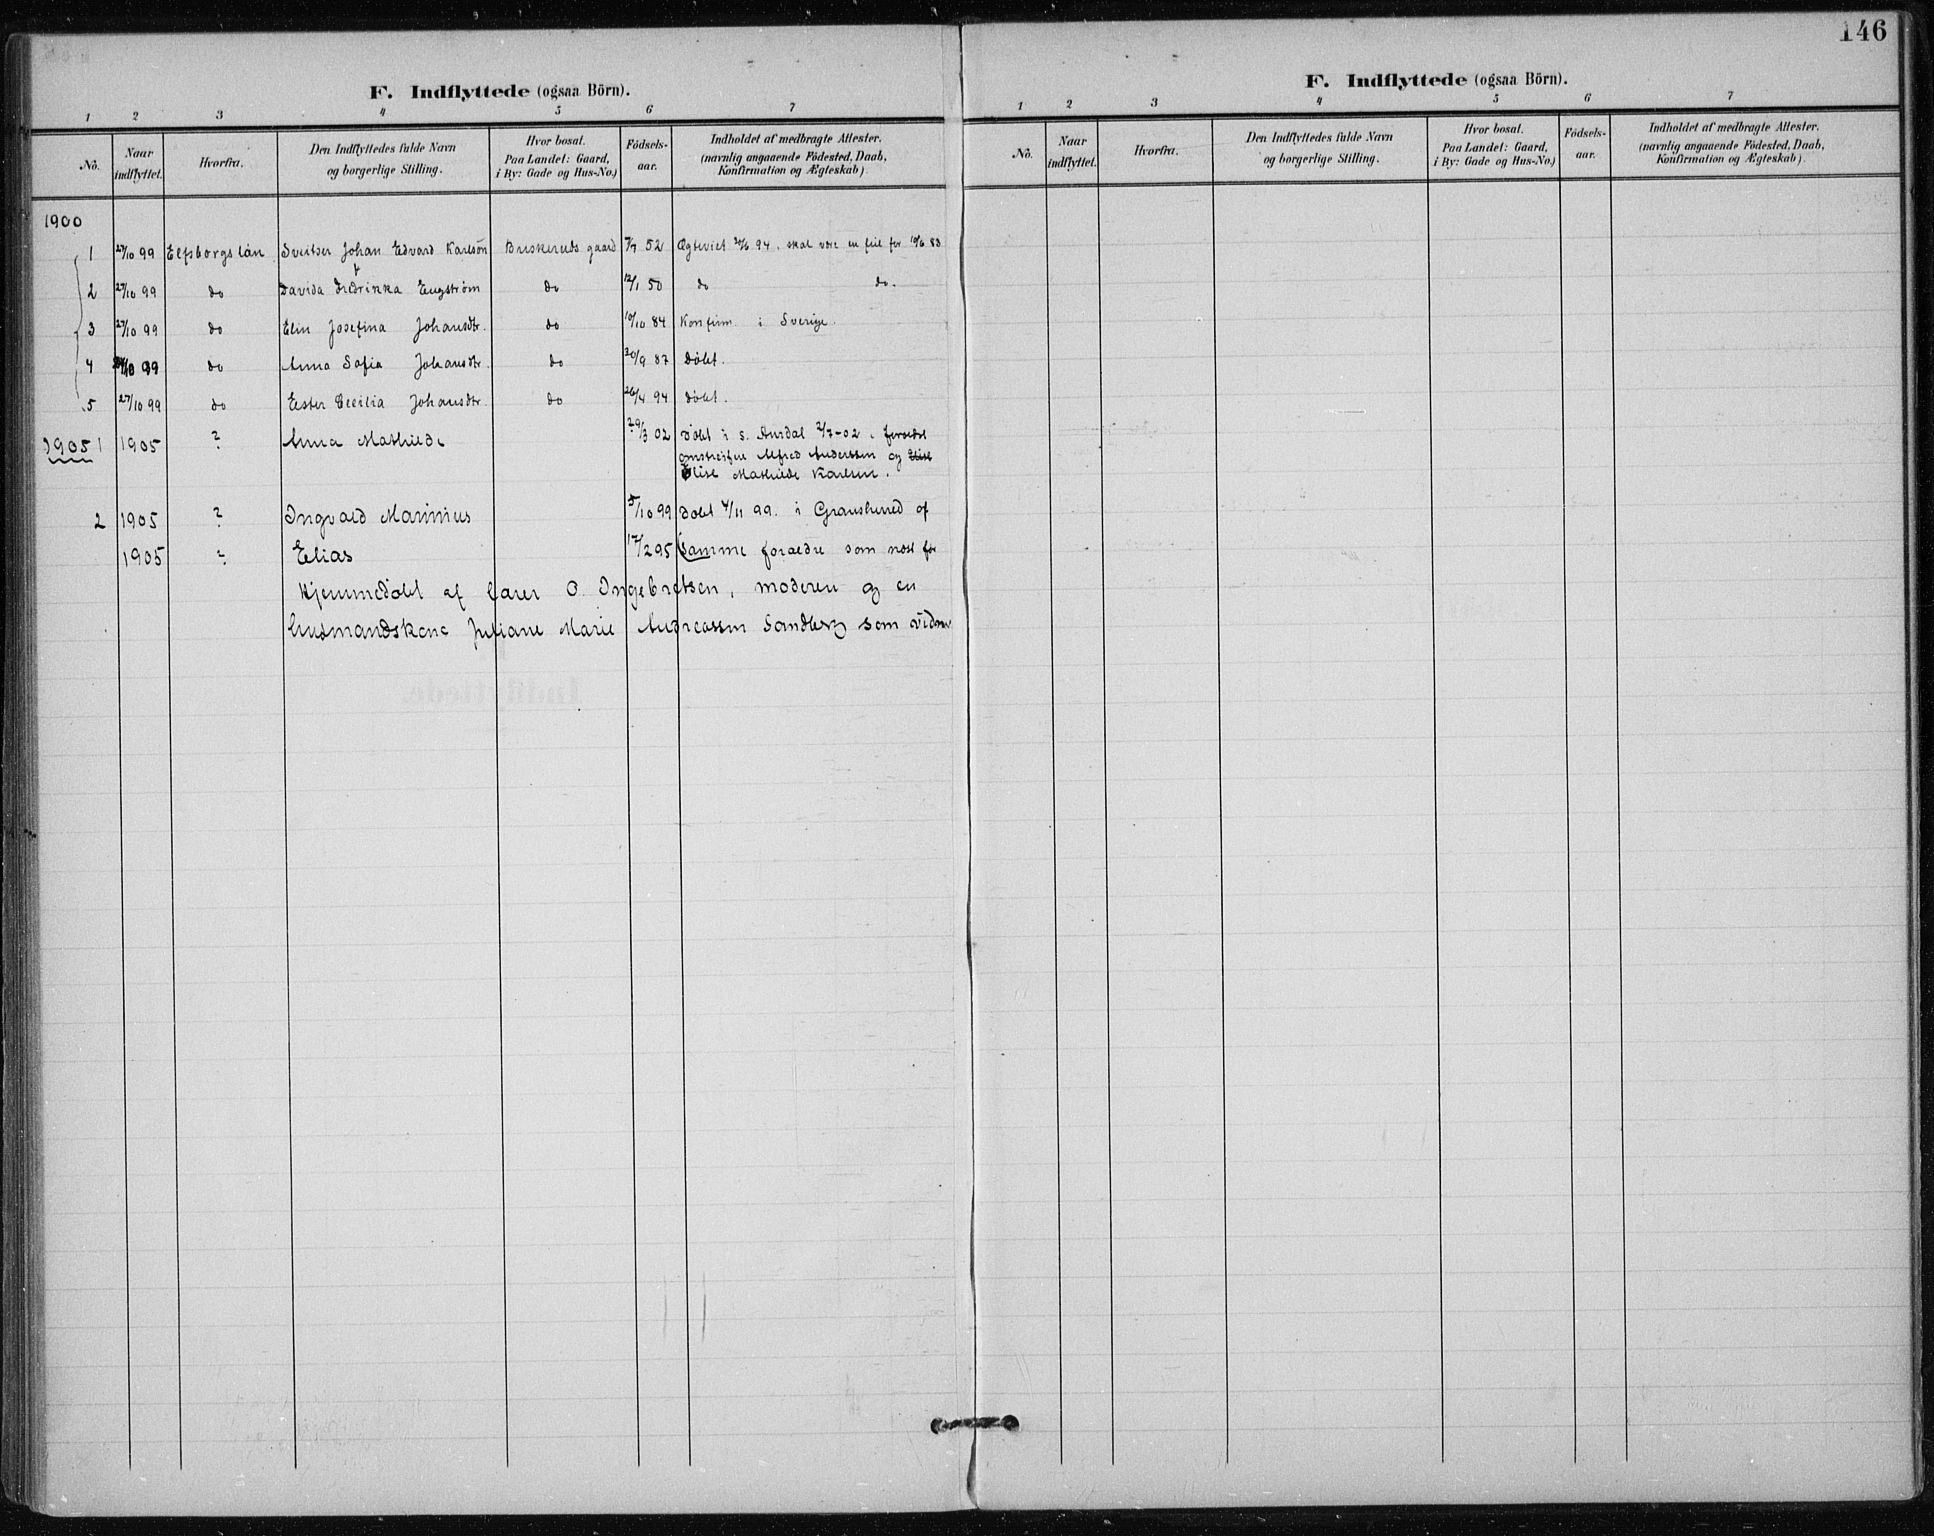 146
F. Indflyttede (ogsaa Börn).
1 2 3 4 5 6 7
No. Naar indflyttet. Hvorfra. Den Indflyttedes fulde Navn og borgerlige Stilling. Hvor bosat. Paa Landet: Gaard, i By: Gade og Hus-No.) Födsels-aar. Indholdet af medbragte Attester. (navnlig angaaende Födested, Daab, Konfirmation og Ægteskab).
1900
1 27/10 99 Elfsborgs län Sveitser Johan Edvard Karlsön Buskeruds gaard 7/7 52 Ægteviet 94. skal være en feil for 83
2 27/10 99 do Davida Fredrikka Engström do 12/1 50 do do.
3 27/10 99 do Elin Josefina Johansdtr. do 10/10 84 Konfirm. i Sverige.
4 99 do Anna Sofia Johansdtr. do 20/9 87 Döbt.
5 27/10 99 do Ester Cecilia Johansdtr. do 26/4 94 Döbt.
1905 1 1905 ? Anna Mathilde 29/3 02 Döbt i S. Aurdal 2/7-02.
Alfred Anderssen og Elise
Elise Mathilde Karlsen.
2 1905 ? Ingvald Marinius 5/10 99 Døbt 4/11 99. i Gransherred af
1905 ? Elias 17/2 95 Samme foraedre som næst før
Hjemmedøbt af Larer O. Ingebretsen, moderen og en
husmandskone Juliane Marie Andreassen Sandberg som vidner
F. Indflyttede (ogsaa Börn).
1 2 3 4 5 6 7
No. Naar indflyttet. Hvorfra. Den Indflyttedes fulde Navn og borgerlige Stilling. Hvor bosat. Paa Landet: Gaard, i By: Gade og Hus-No.) Födsels-aar. Indholdet af medbragte Attester. (navnlig angaaende Födested, Daab, Konfirmation og Ægteskab).